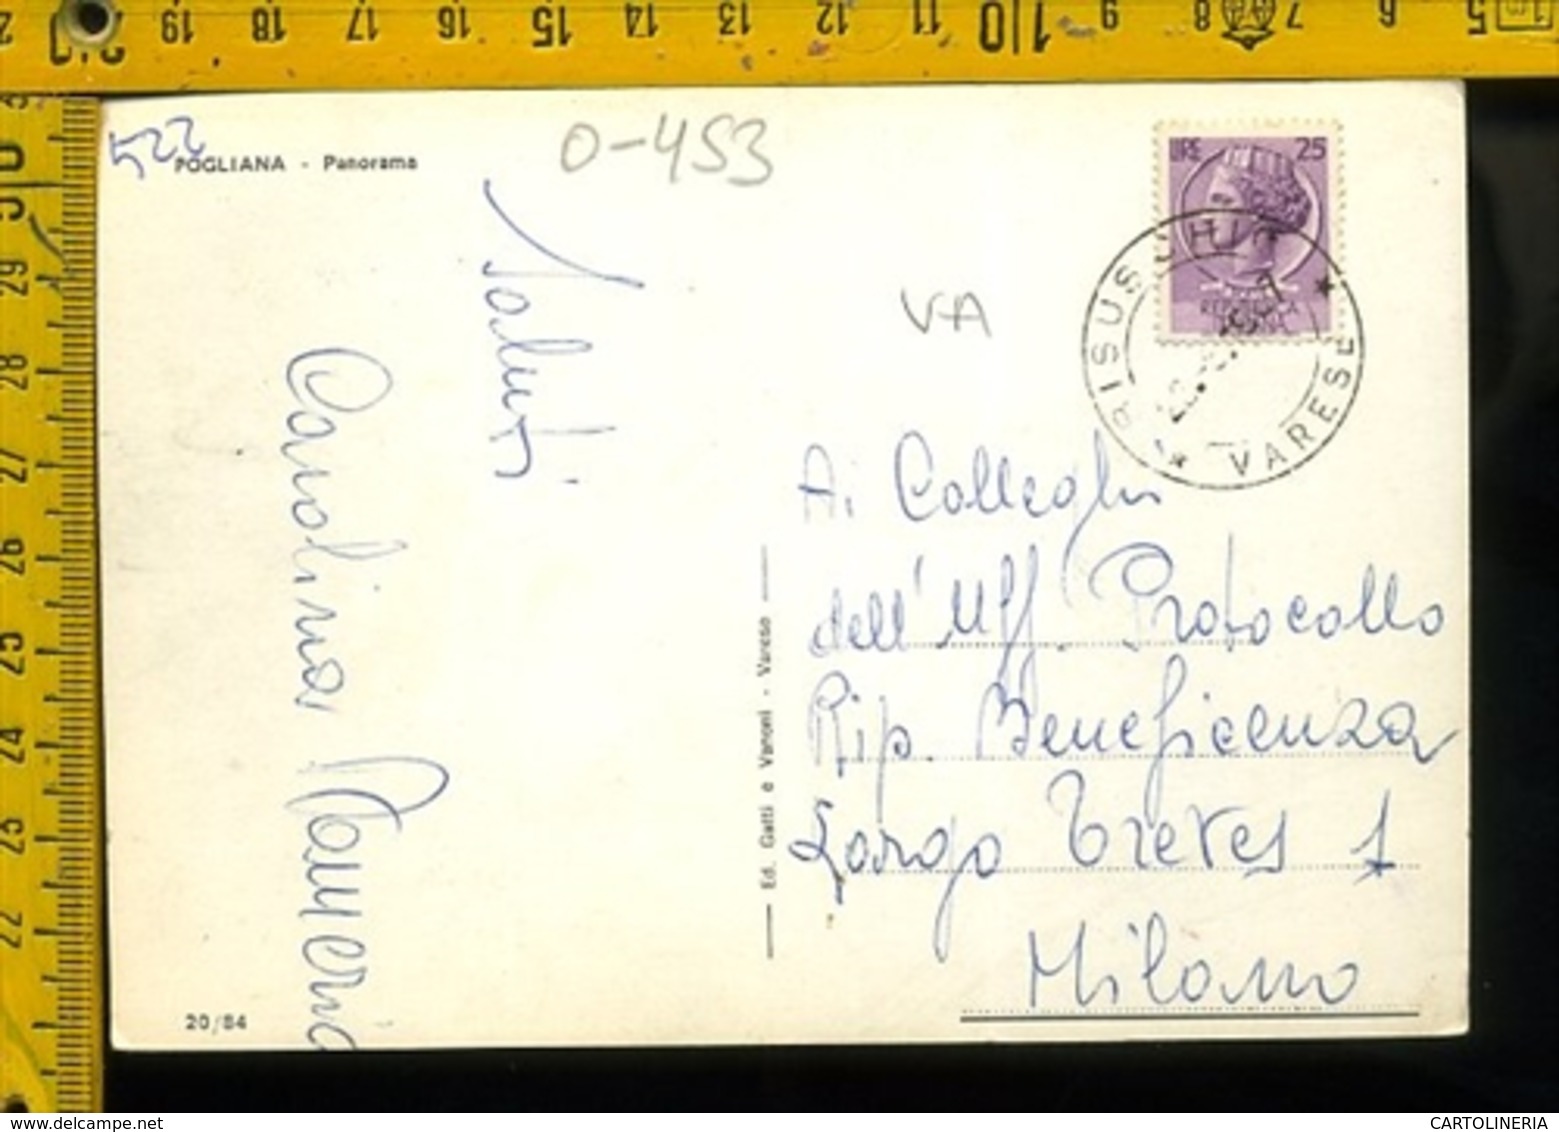 2 20 19 18 17 16 15 14 13 12 11 10 9 8 7 6 5
522
POGLIANA - Panorama
0-453
LIRE 25
REPUBBLICA
VARESE
VA
Saluti
Carolina
Ai Colleghi
dell' Uff. Protocollo
Rip. Beneficenza
Largo Treves 1
Milano
Ed. Gatti e Vanoni - Varese
20/84
29
28
27
26
25
24
23
22
www.delcampe.net
CARTOLINERIA